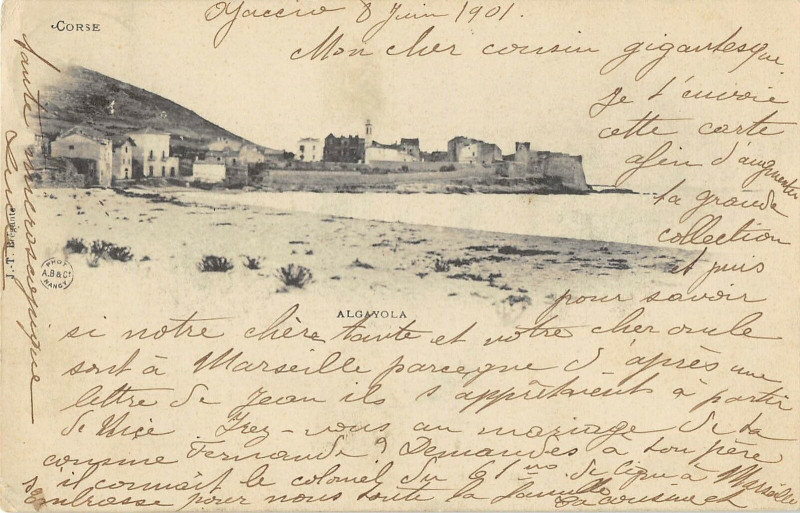 CORSE
Ajaccio 8 Juin 1901.
Mon cher cousin gigantesque
je t'envoie
cette carte
afin d'augmenter
ta grande
collection
et puis
pour savoir
si notre chère tante et votre cher oncle
sont à Marseille parceque d'après une
lettre de Jean ils s'apprêtaient à partir
de Nice Irez-vous au mariage de ta
cousine Fernande? Demandes à ton père
il connait le colonel du 61me de ligne à Marseille
embrasse pour nous toute la famille
ta cousine et
tante microscopique
ALGAYOLA
J.-T.
PHOT
A.B & Cie
NANCY